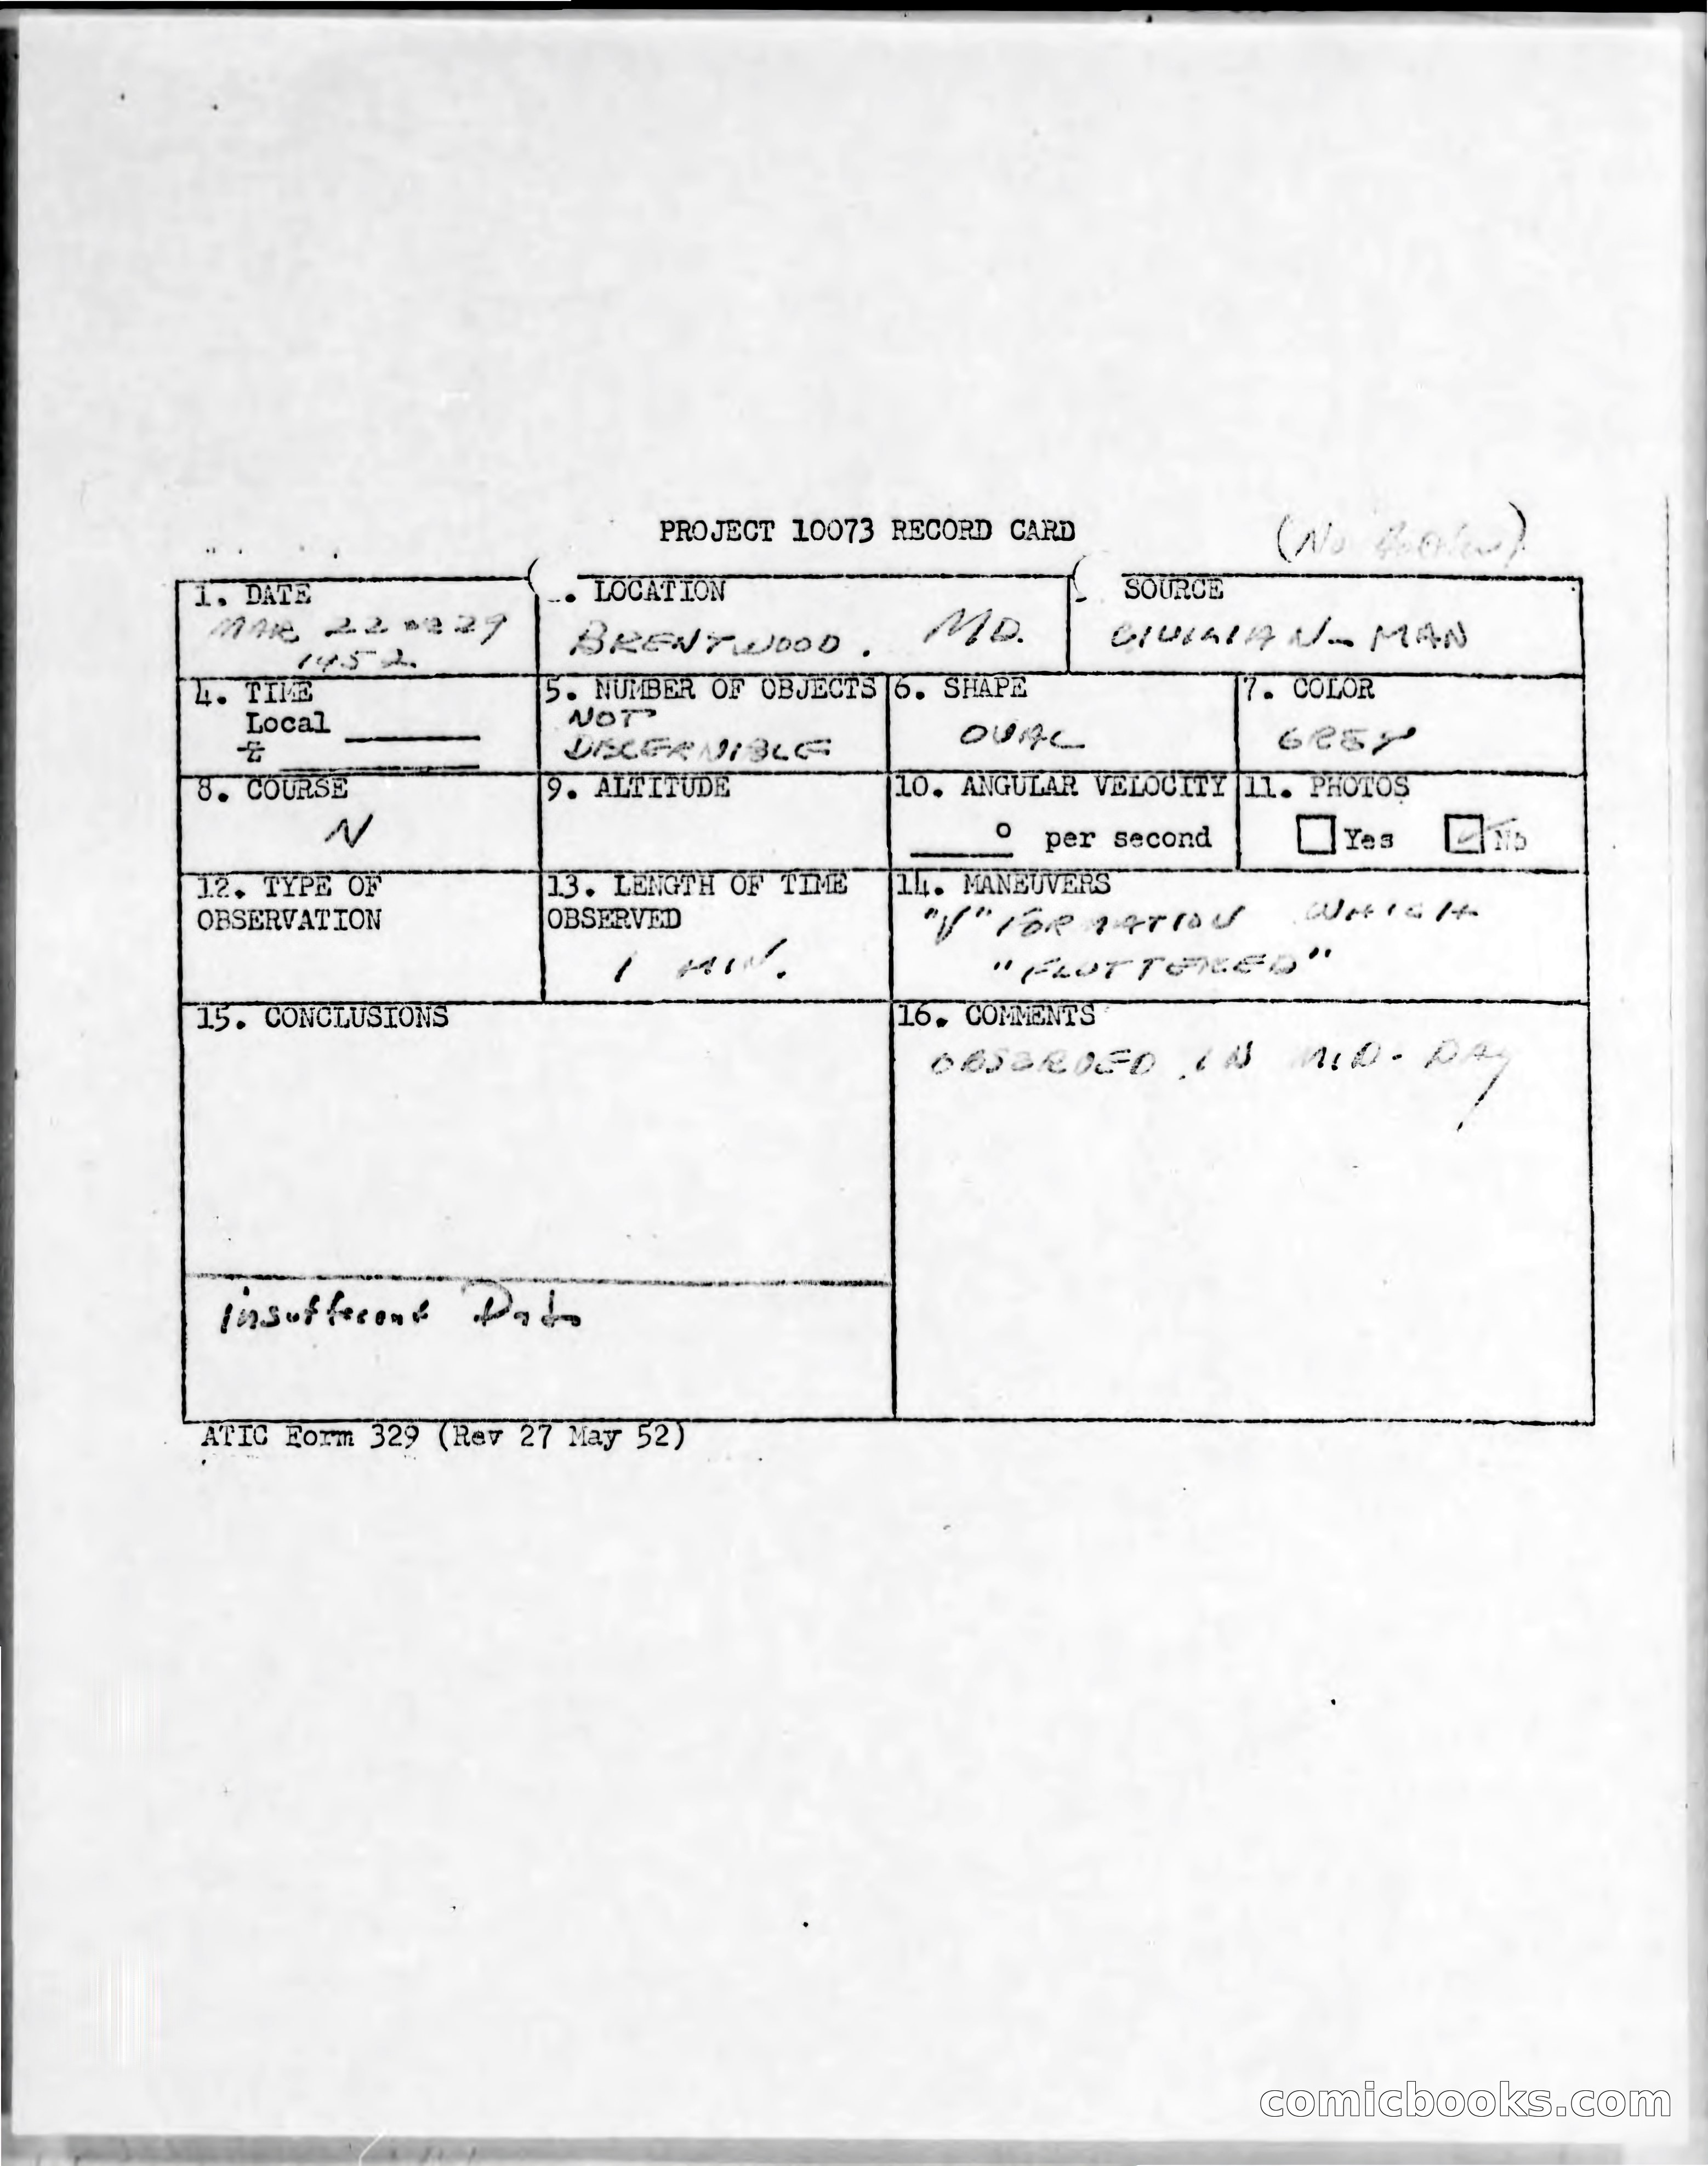 PROJECT 10073 RECORD CARD (No
1. DATE
MAR 22 OR 29
1952
. LOCATION
BRENTWOOD. MD.
SOURCE
CIVILIAN - MAN
4. TIME
Local
Z
5. NUMBER OF OBJECTS
NOT
DISCERNIBLE
6. SHAPE
OVAL
7. COLOR
GREY
8. COURSE
N
9. ALTITUDE
10. ANGULAR VELOCITY
° per second
11. PHOTOS
Yes No
12. TYPE OF
OBSERVATION
13. LENGTH OF TIME
OBSERVED
1 MIN.
14. MANEUVERS
"V" FORMATION WHICH
"FLUTTERED"
15. CONCLUSIONS
Insufficent Data
16. COMMENTS
OBSERVED IN MID-DAY
ATIC Form 329 (Rev 27 May 52)
comicbooks.com